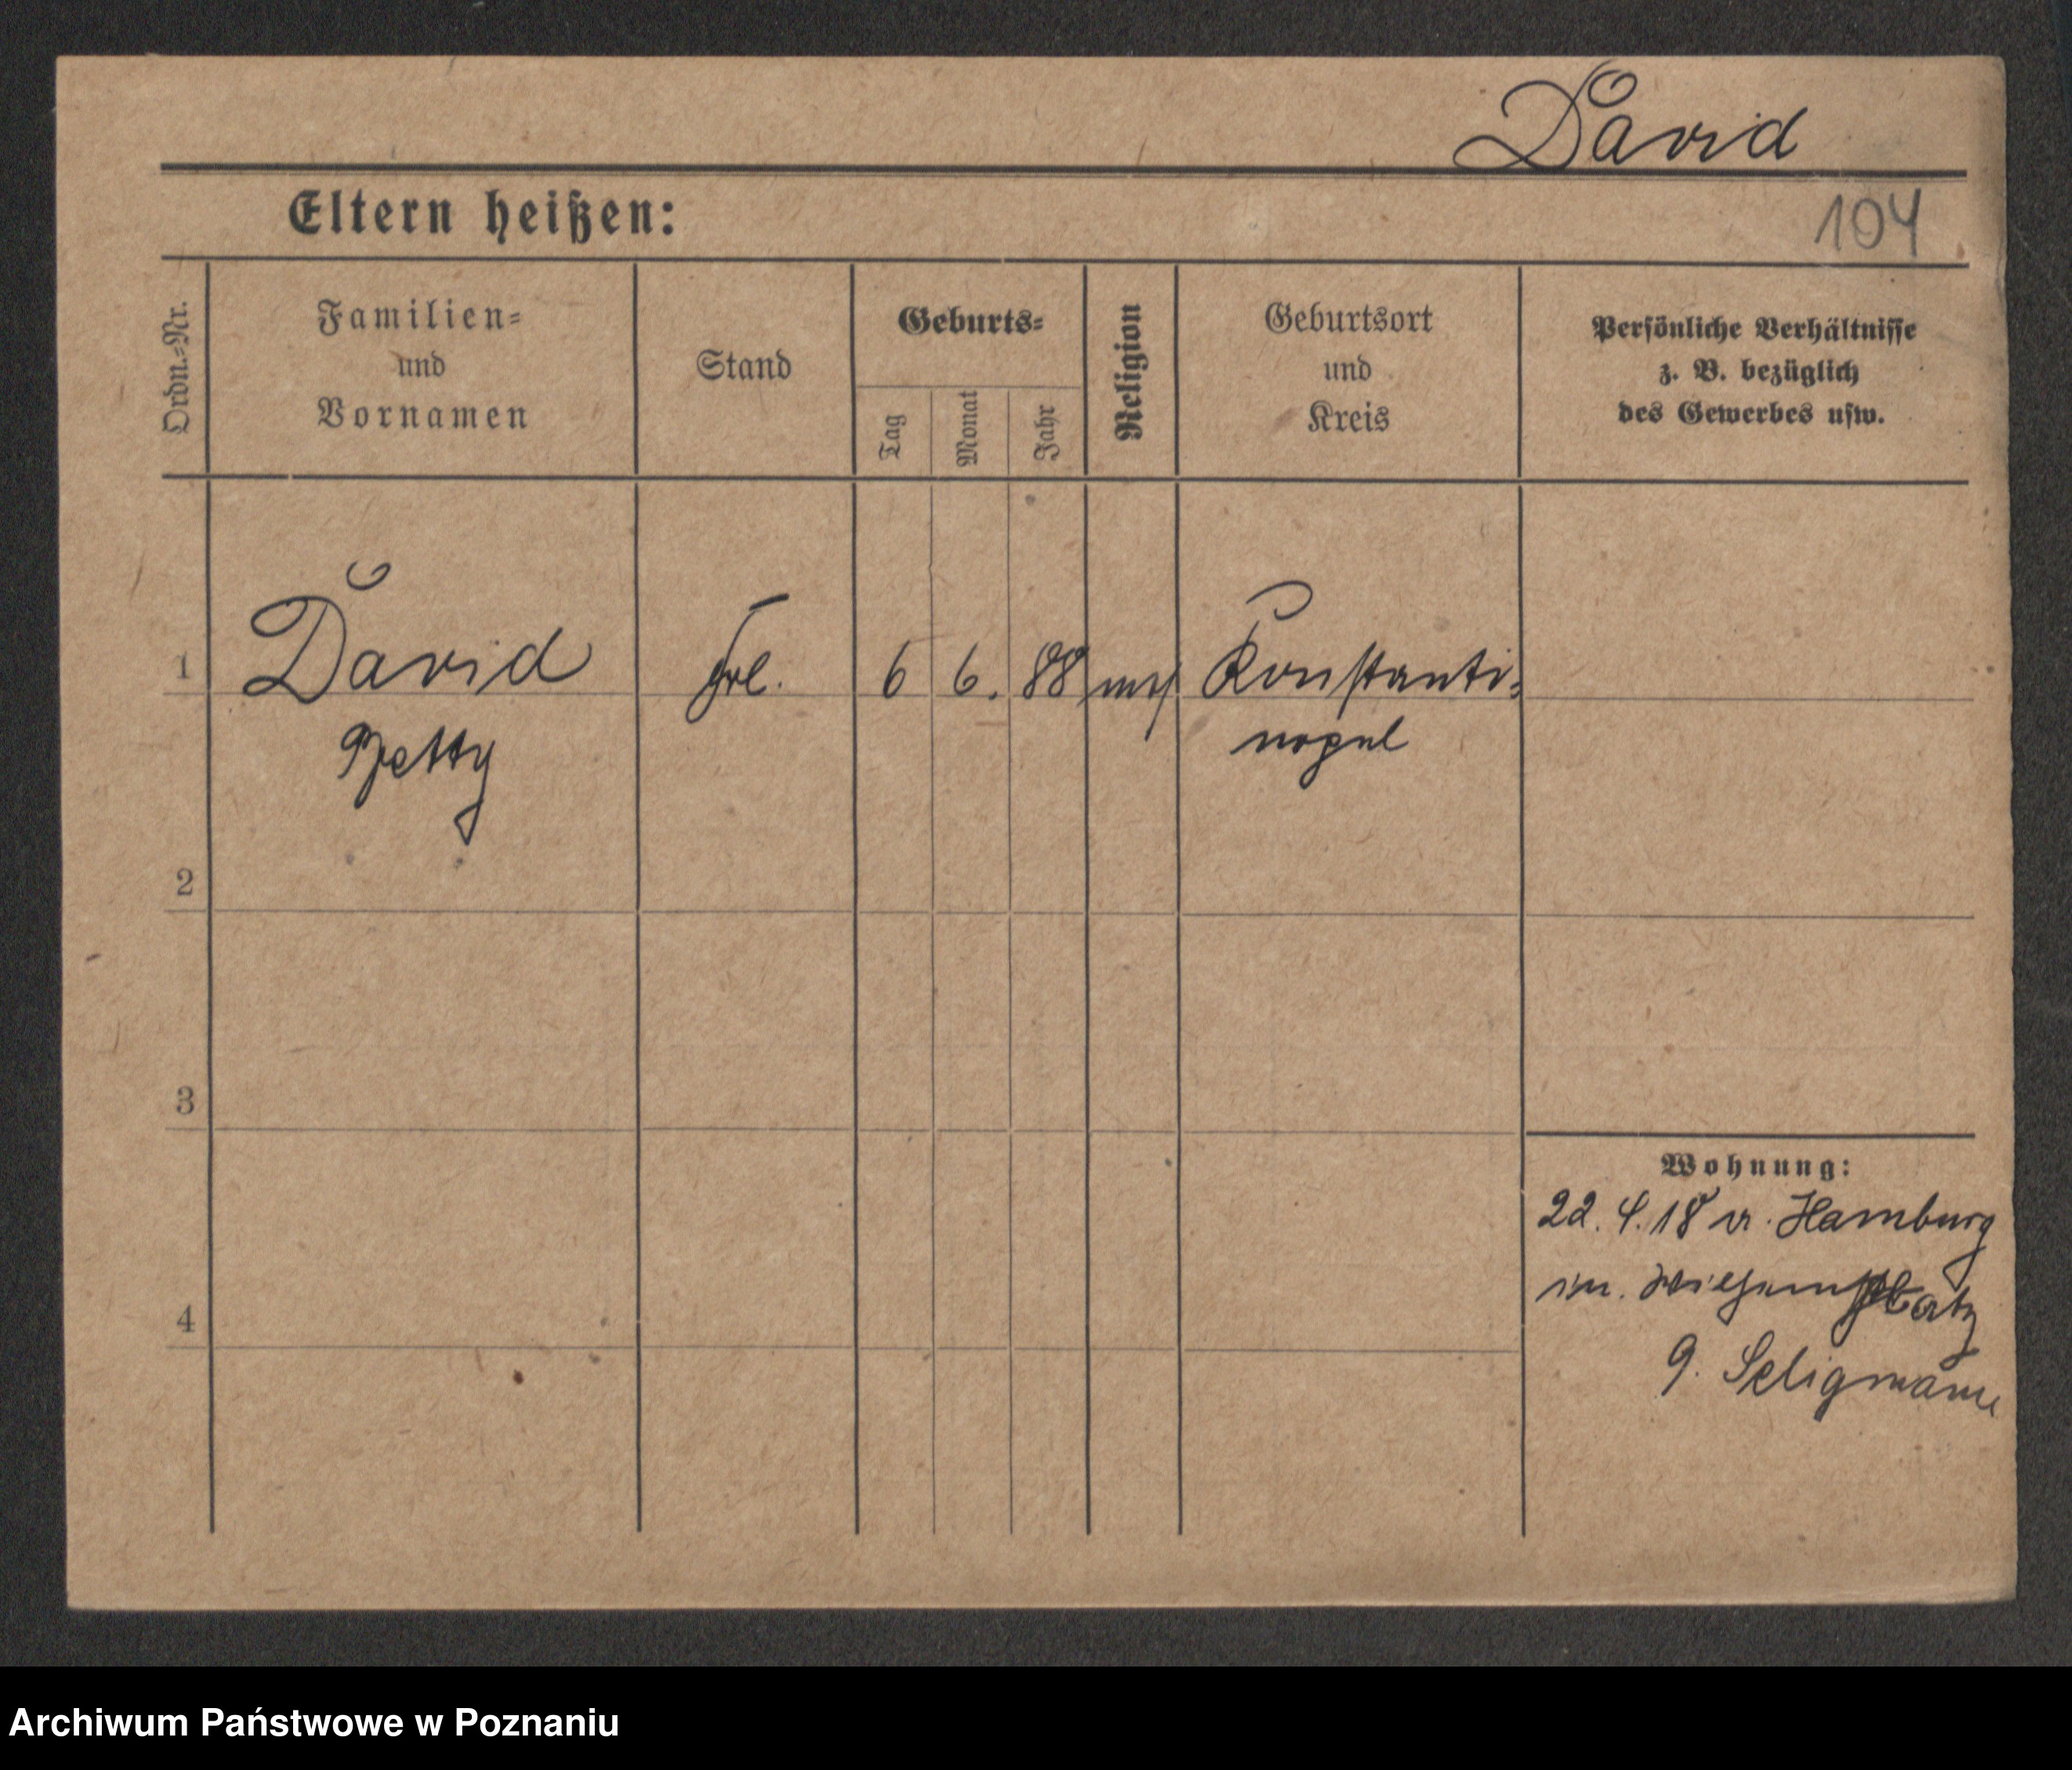 David
Eltern heißen:
104
Ordn.=Nr.
Familien=
und
Vornamen
Stand
Geburts=
Tag
Monat
Jahr
Religion
Geburtsort
und
Kreis
Persönliche Verhältnisse
z. B. bezüglich
des Gewerbes usw.
1
David
Frl.
6
6.
88
Konstanti=
Betty
nopel
2
3
4
Wohnung:
22. 4. 18 v. Hamburg
9. Seligmann
Archiwum Państwowe w Poznaniu